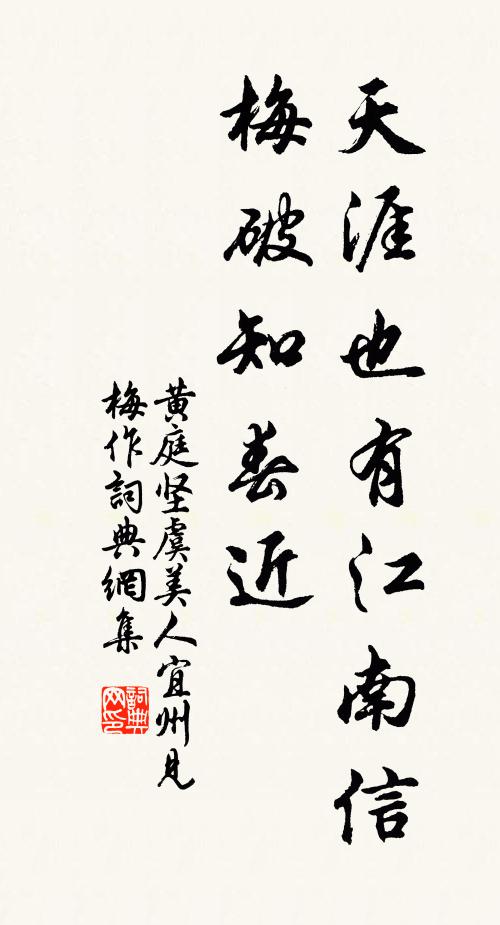 天涯也有江南信
梅破知春近
黄庭坚虞美人宜州見
梅作詞典網集
詞典
网印